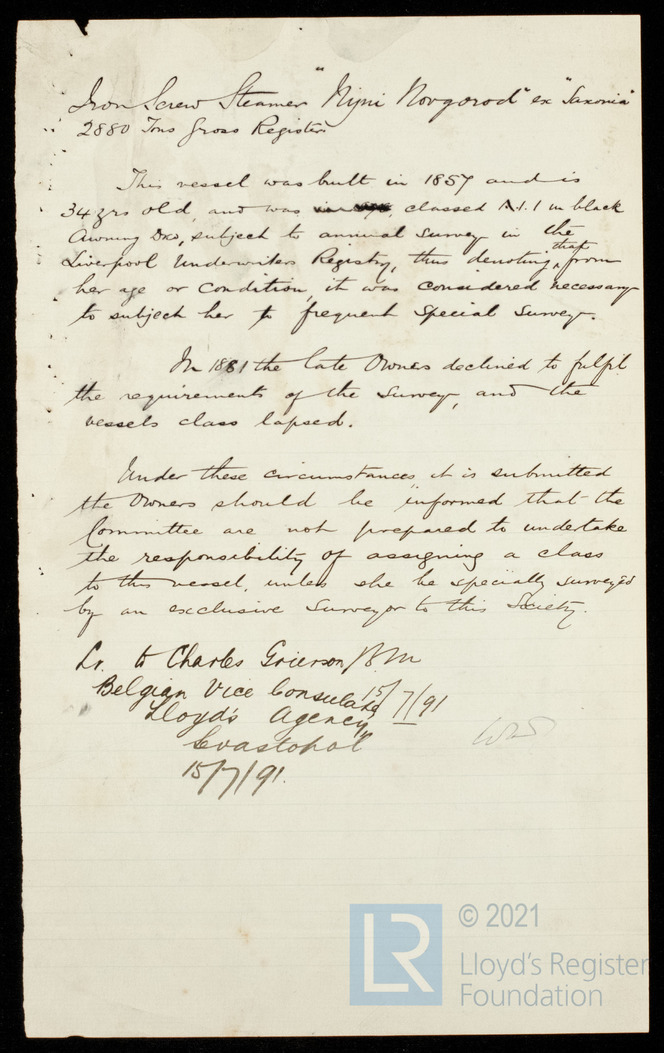 Iron Screw Steamer "Nijni Novgorod" ex "Saxonia"
2880 Tons Gross Register
This vessel was built in 1857 and is
34 yrs old, and was classed A.1 in black
Awning Dkd, subject to annual survey in the
Liverpool Underwriters Registry, thus denoting that from
her age or condition, it was considered necessary
to subject her to frequent Special Survey.
In 1881 the late Owners declined to fulfil
the requirements of the Survey, and the
vessels class lapsed.
Under these circumstances, it is submitted
the Owners should be informed that the
Committee are not prepared to undertake
the responsibility of assigning a class
to this vessel, unless she be specially surveyed
by an exclusive Surveyor to this Society.
Lr. to Charles Grierson
Belgian Vice Consulate 15/7/91
Lloyd's Agency
Sevastopol
15/7/91.
LR
© 2021
Lloyd's Register
Foundation